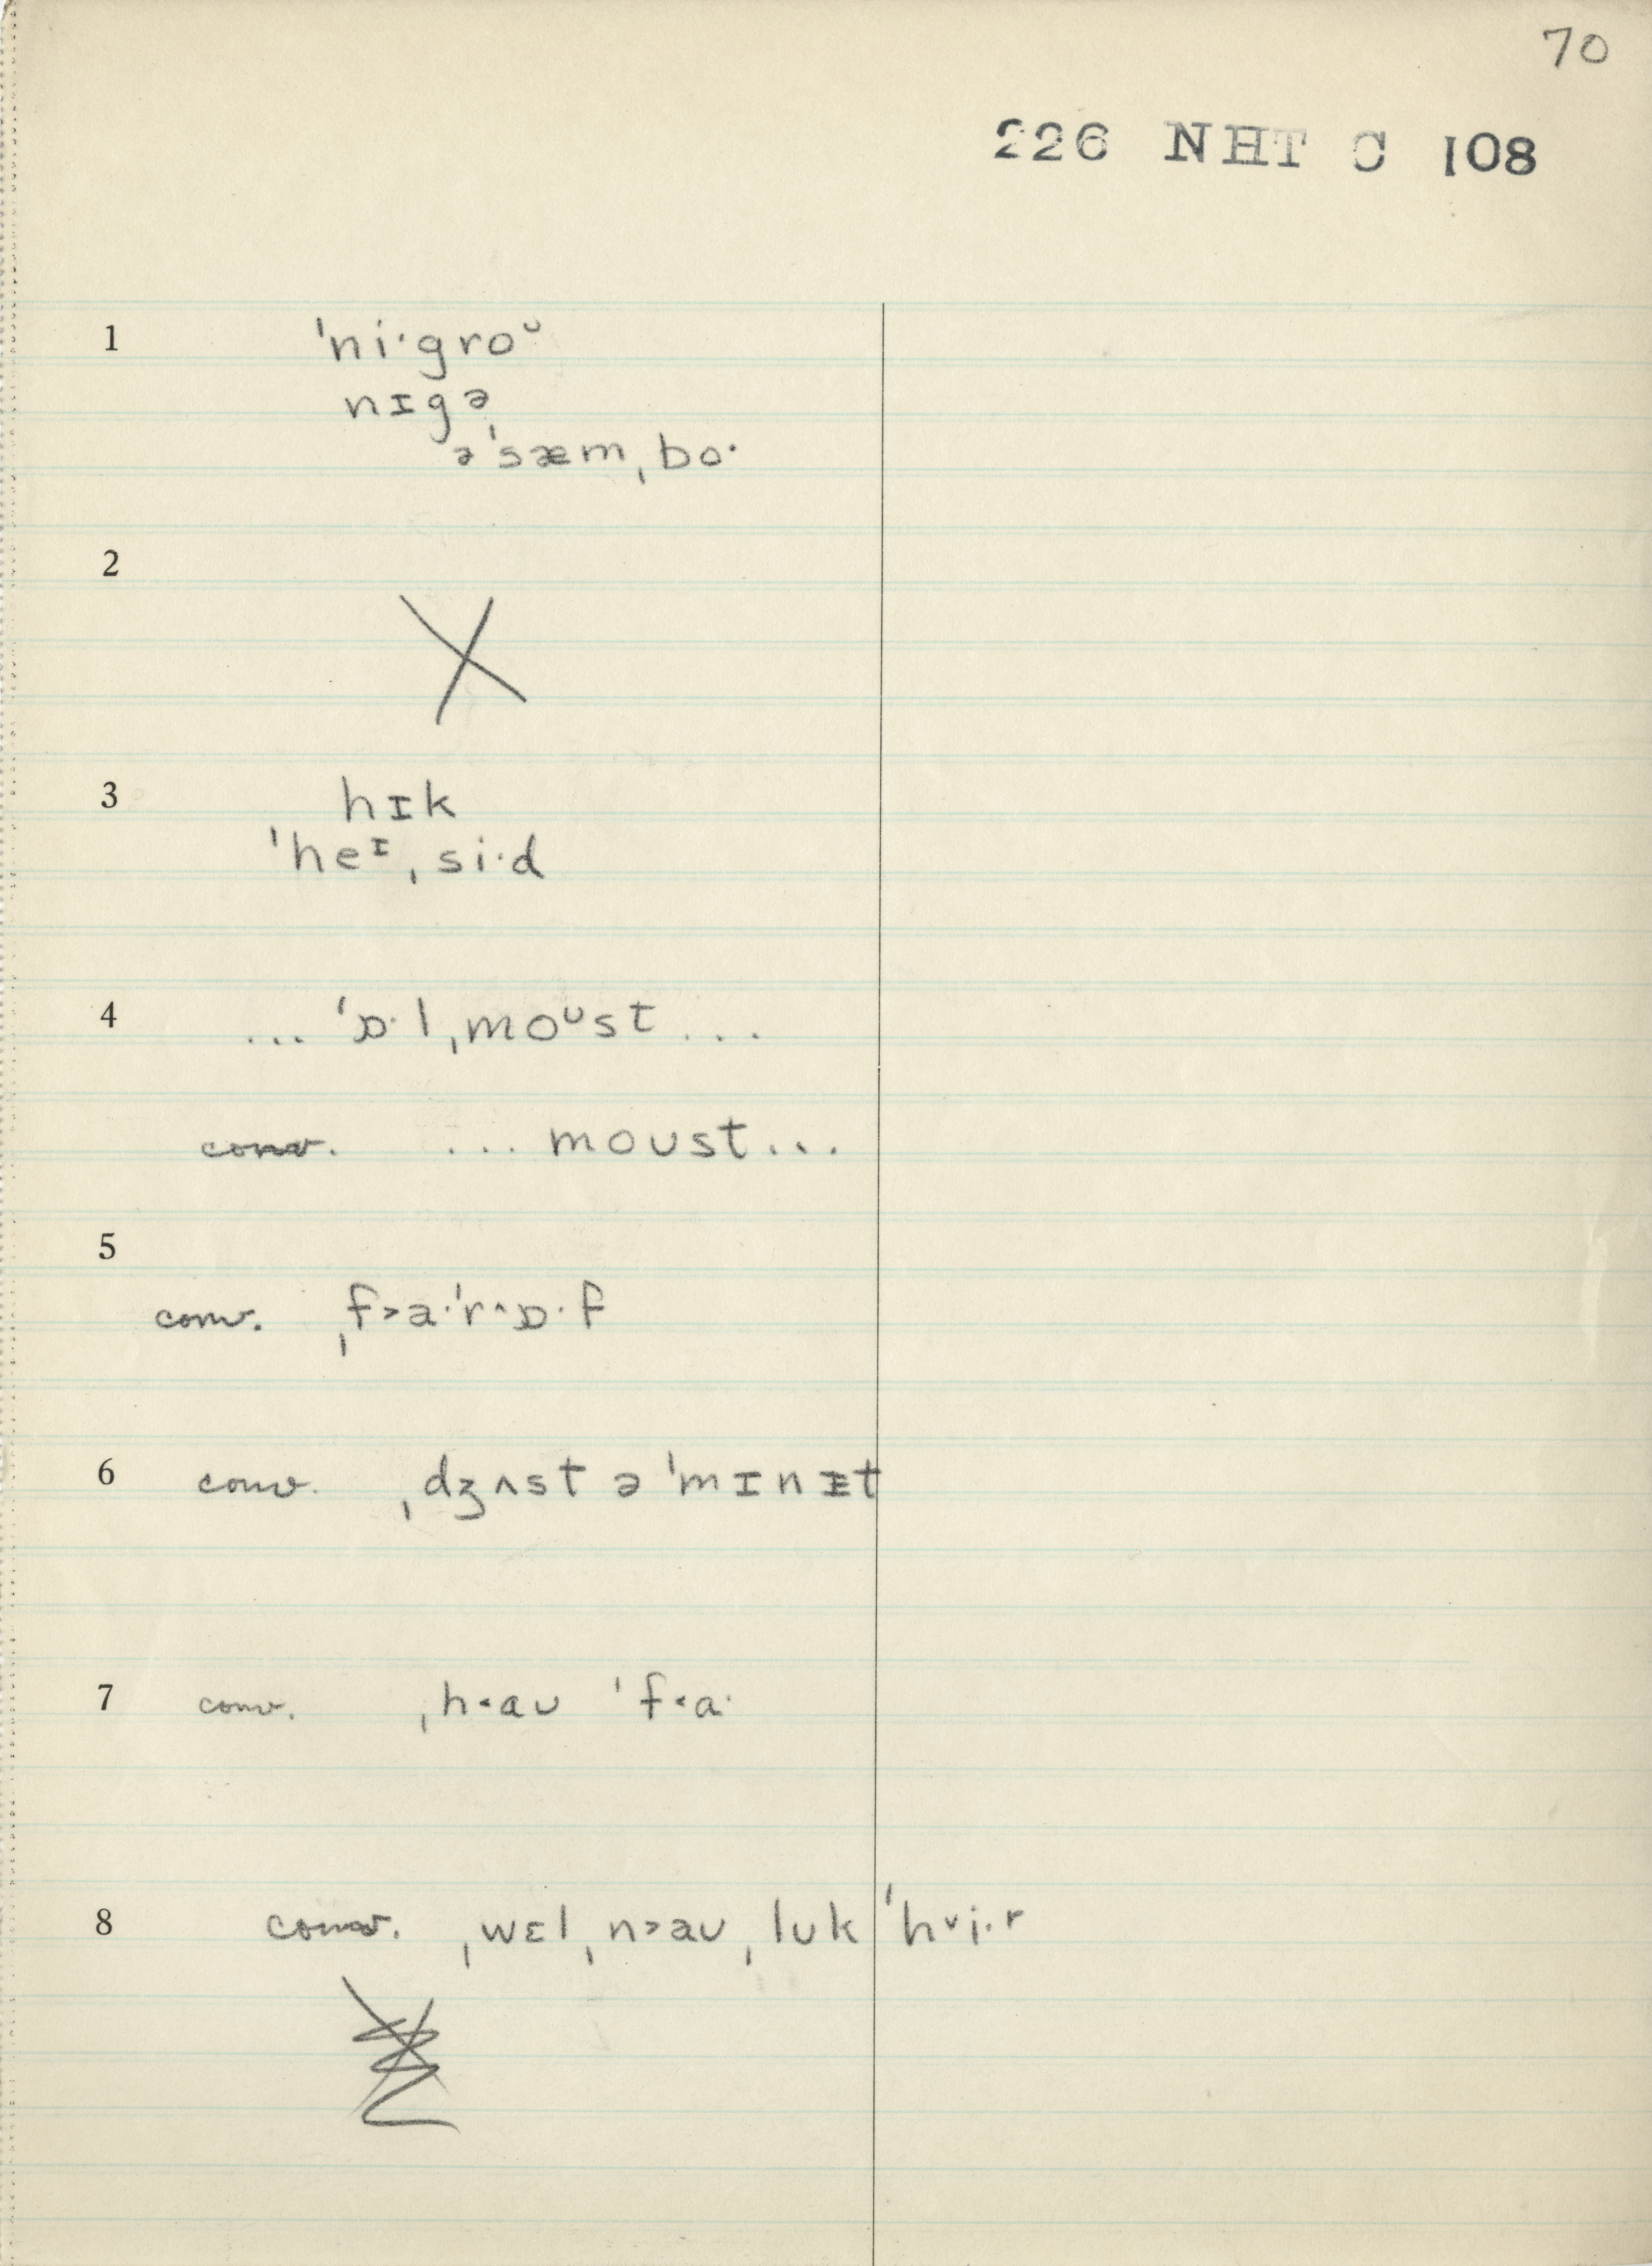 70
226 NHT C 108
1 ˈni·groᴜ
nɪgə
ə ˈsæmˌbo·
2
3 hɪk
ˈheᶦˌsi·d
4 ... ˈɒ·lˌmoᶷst ...
conv. ... moʊst...
5
conv. ˌf˃a·ˈr^ɒ·f
6 conv. ˌdʒʌst ə ˈmɪnᵻt
7 conv. ˌh˂aʊ ˈf˂a·
8 conv. ˌwɛlˌn˃aʊˌlʊk ˈh˅i·r